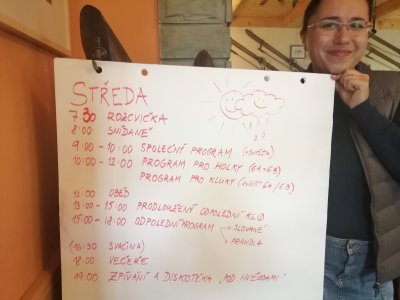 STŘEDA
7 30 ROZCVIČKA
8:00 SNÍDANĚ
9:00 - 10:00 SPOLEČNÝ PROGRAM (+svačina)
10:00 - 12:00 PROGRAM PRO HOLKY (6A+6B)
PROGRAM PRO KLUKY (6A/6B)
12:00 OBĚD
13:00 - 15:00 PRODLOUŽENÝ ODPOLEDNÍ KLID
15:00 - 18:00 ODPOLEDNÍ PROGRAM → SLOVANÉ
→ PRAVIDLA
(16:30 SVAČINA)
18:00 VEČEŘE
19:00 ZPÍVÁNÍ A DISKOTÉKA „POD HVĚZDAMI"